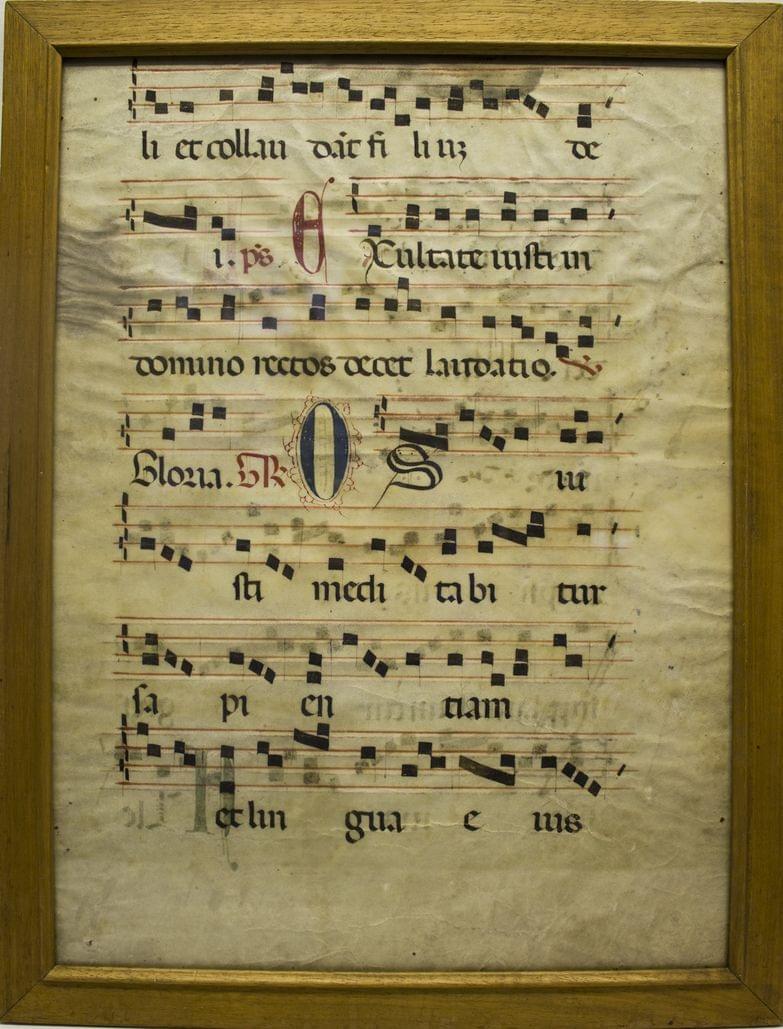 li et collau dāt fi li uʒ de
i. ps E Xultate iusti in
domino rectos decet laudatio.
Gloria. GR O S iu
sti medi ta bi tur
sa pi en tiam
et lin gua e ius